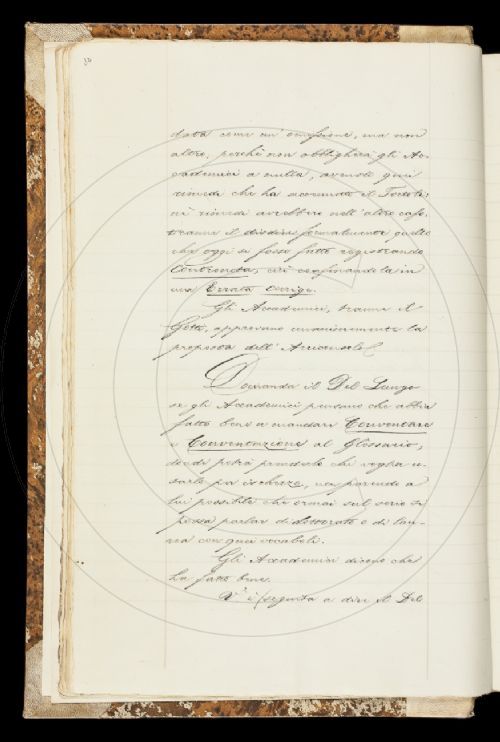 data come un' omissione, ma non
altro, perchè non obbligherà gli Ac-
cademici a nulla, avendo quei
rimedi che ha accennato il Tortoli;
nè rimedi avrebbero nell' altro caso,
tranne il disdire formalmente quello
che oggi si fosse fatto registrando
Contronota, cioè confinandola in
una Errata corrige.
Gli Accademici, tranne il
Gotti, approvano unanimemente la
proposta dell' Arciconsolo
Domanda il Del Lungo
se gli Accademici pensano che abbia
fatto bene a mandare Conventare
e Conventazione al Glossario,
donde potrà prenderlo chi voglia u-
sarle per ischerzo, non parendo a
lui possibile che ormai sul serio si
possa parlar di dottorato o di lau-
rea con quei vocaboli.
Gli Accademici dicono che
ha fatto bene.
V' è seguita a dire il Del